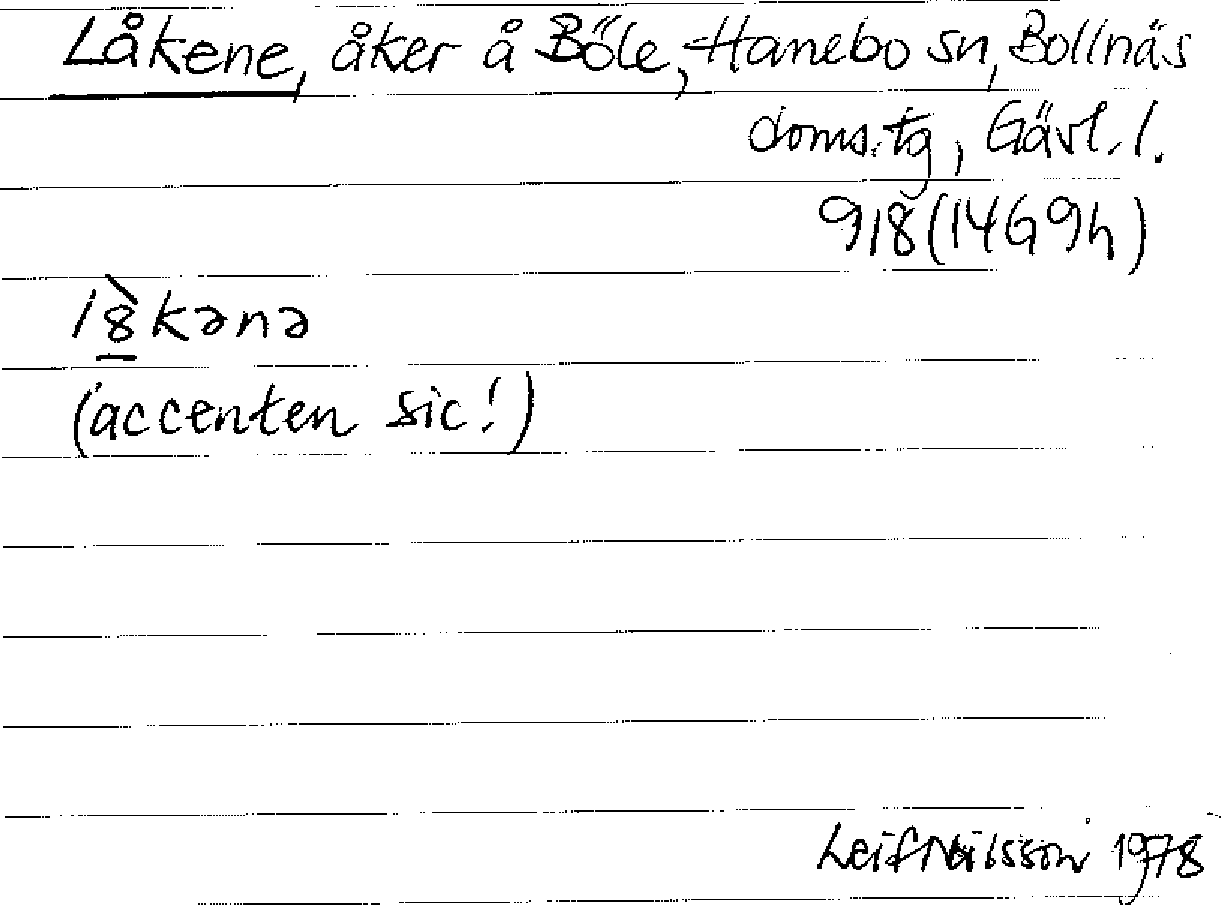 Låkene, åker å Böle, Hanebo sn, Bollnäs
doms.tg, Gävl. l.
918 (14G9h)
l8̀kənə
(accenten sic!)
Leif Nilsson 1978